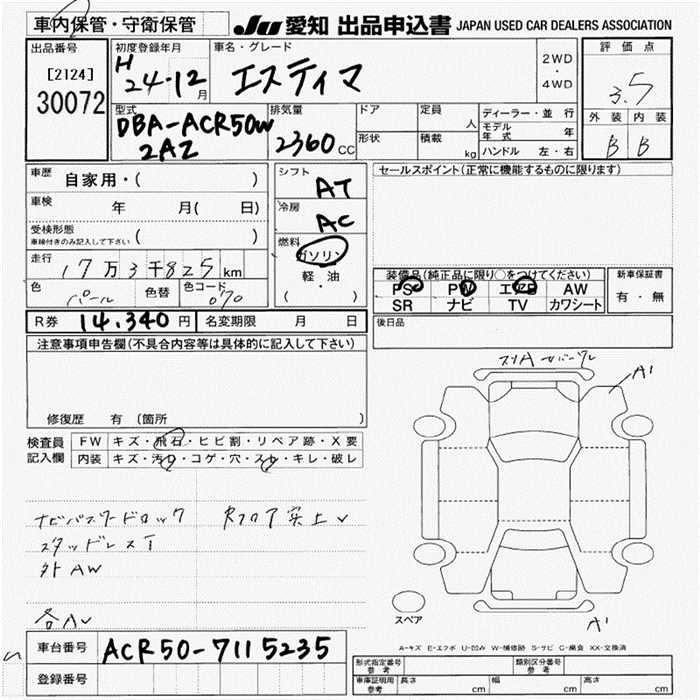 車内保管・守衛保管
JU 愛知 出品申込書 JAPAN USED CAR DEALERS ASSOCIATION
出品番号
[2124]
30072
初度登録年月
H 24-12月
車名・グレード
エスティマ
2WD
・
4WD
評価点
3.5
外装 内装
B B
型式
DBA-ACR50W
2AZ
排気量
2360 CC
ドア
定員 人
形状
積載 kg
ディーラー・並行
モデル年式 年
ハンドル 左・右
車歴 自家用・( )
車検 年 月( 日)
受検形態
車検付きのみ記入して下さい ( )
走行 17万3千825km
色 パール 色替 色コード 070
シフト
AT
冷房
AC
燃料
ガソリン
軽・油
( )
セールスポイント(正常に機能するものに限ります)
装備品(純正品に限り○をつけてください)
PS PW エアB AW
SR ナビ TV カワシート
新車保証書
有・無
R券 14,340円 名変期限 月 日
後日品
注意事項申告欄(不具合内容等は具体的に記入して下さい)
修復歴 有 (箇所 )
検査員記入欄
FW キズ・飛石・ヒビ割・リペア跡・X要
内装 キズ・汚れ・コゲ・穴・スレ・キレ・破レ
ナビパスワードロック
スタッドレスT
外AW
各A
A1
A1
スペア
A-キズ E-エクボ U-凹み W-補修跡 S-サビ C-腐食 XX-交換済
車台番号 ACR50-7115235
登録番号
形式指定番号 参考
類別区分番号 参考
車庫証明用 参考 長さ cm 幅 cm 高さ cm